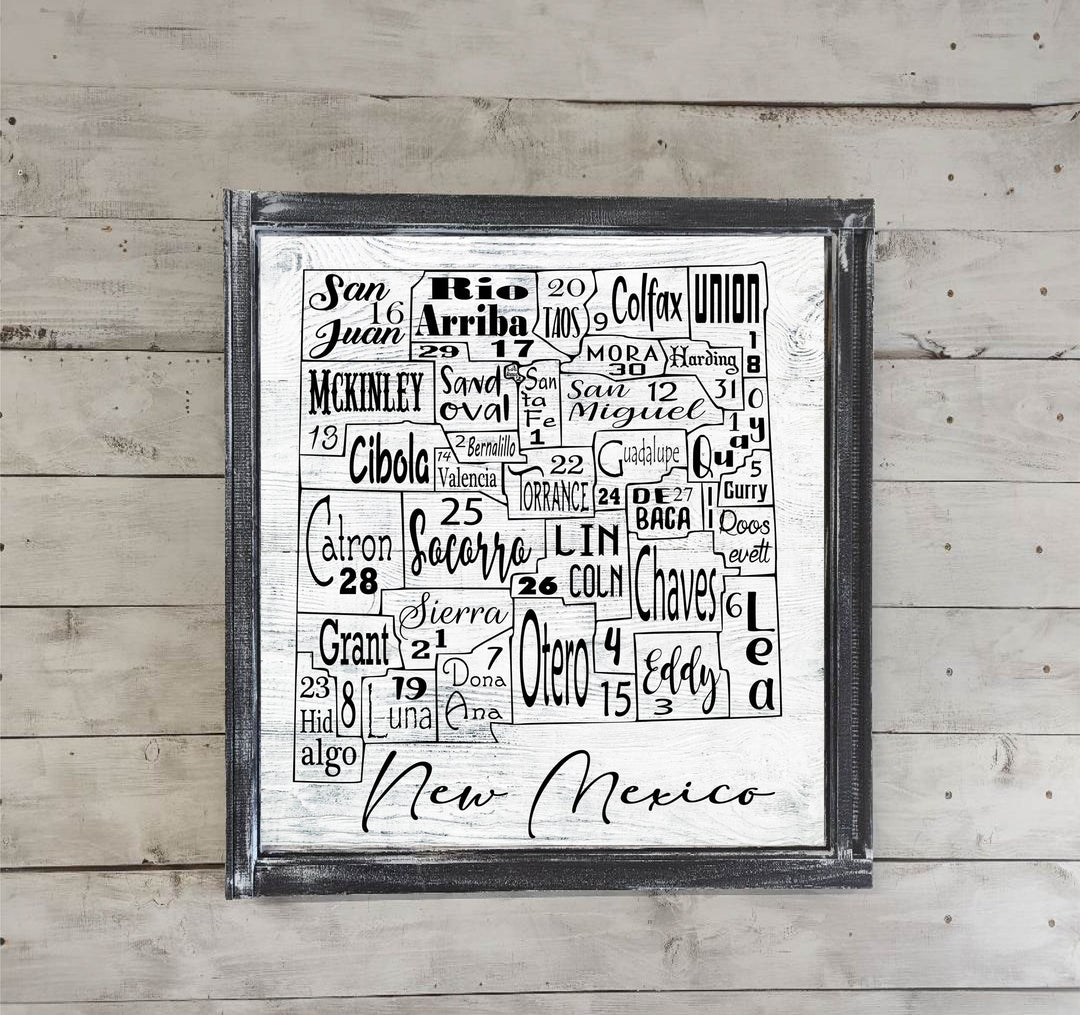 San
16
Juan
Rio
Arriba
29 17
20
TAOS
9 Colfax
UNION
18
MORA
30
Harding
31
MCKINLEY
13
Sand
oval
San
ta
Fe
1
San 12
Miguel
10
Quay
Cibola
2 Bernalillo
14
Valencia
22
TORRANCE
Guadalupe
24
DE 27
BACA
5
Curry
11
Roos
evelt
Catron
28
25
Socorro
LIN
COLN
26
Chaves
6
Lea
Sierra
21
Grant
Otero
4
15
Eddy
3
7
Dona
Ana
19
Luna
8
23
Hid
algo
New Mexico